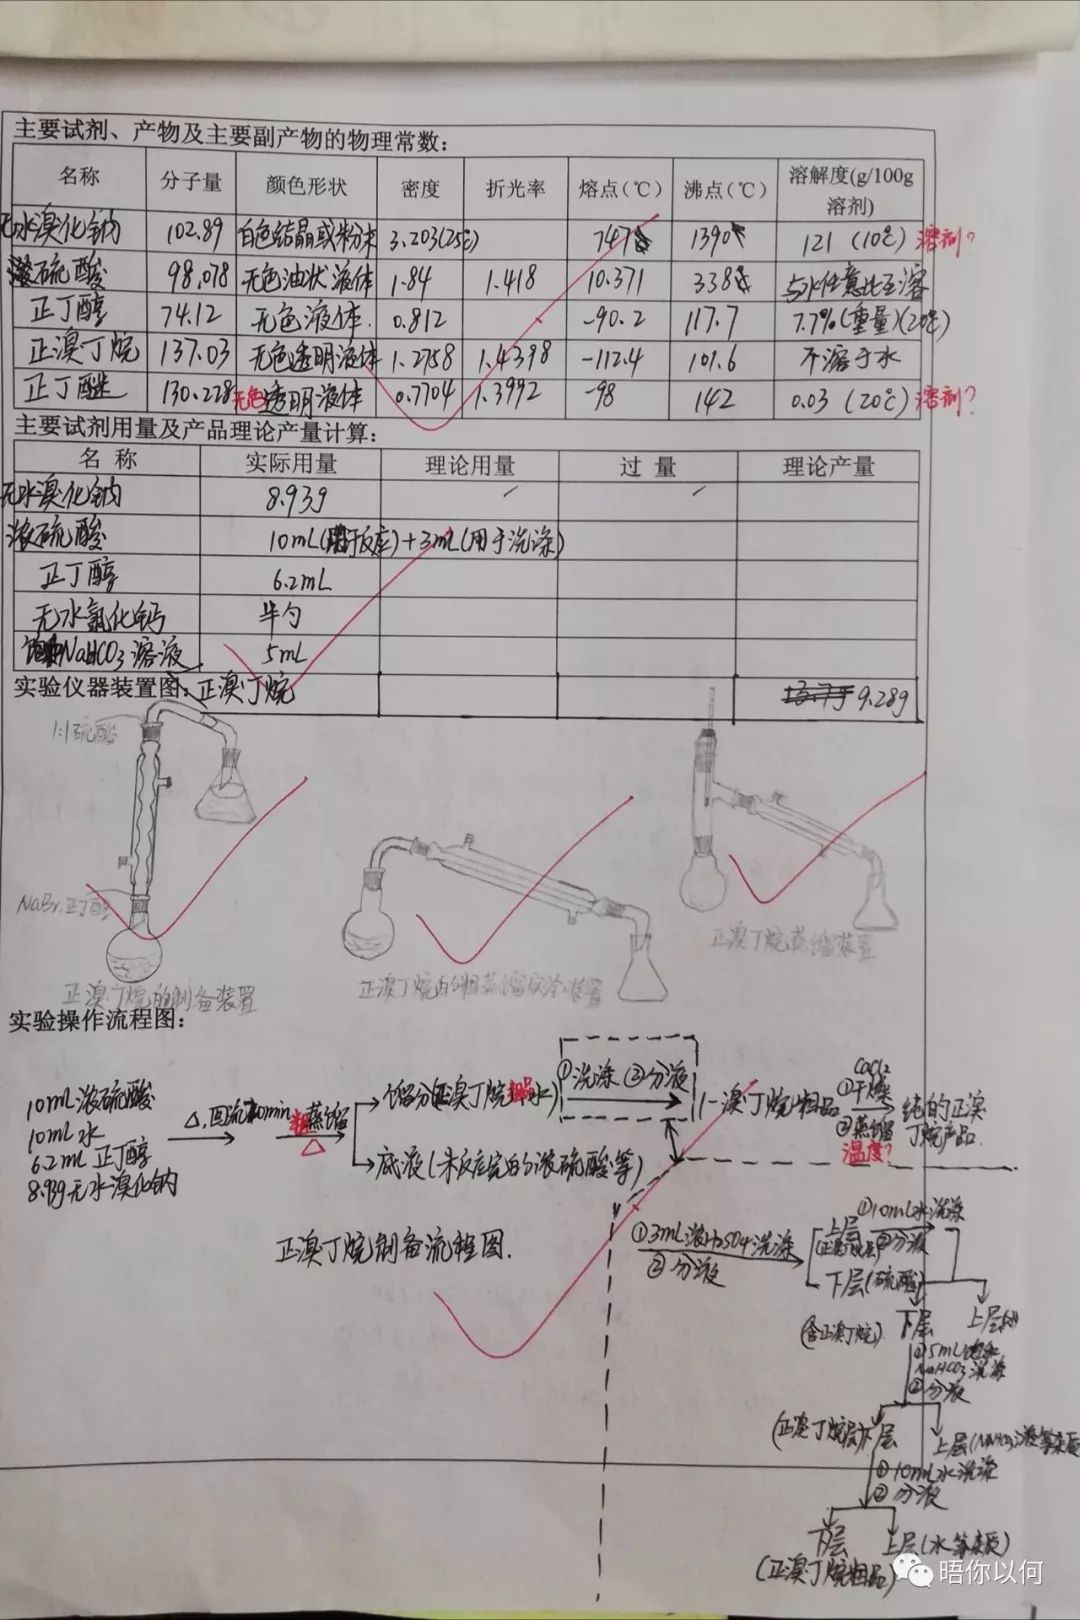 主要试剂、产物及主要副产物的物理常数：
名称 分子量 颜色形状 密度 折光率 熔点(℃) 沸点(℃) 溶解度(g/100g溶剂)
无水溴化钠 102.89 白色结晶或粉末 3.203(25℃) 747 1390 121 (10℃) 溶剂?
浓硫酸 98.078 无色油状液体 1.84 1.418 10.371 338 与水任意比互溶
正丁醇 74.12 无色液体. 0.812 -90.2 117.7 7.7%(重量)(20℃)
正溴丁烷 137.03 无色透明液体 1.2758 1.4398 -112.4 101.6 不溶于水
正丁醚 130.228 无色透明液体 0.7704 1.3992 -98 142 0.03 (20℃) 溶剂?
主要试剂用量及产品理论产量计算：
名 称 实际用量 理论用量 过 量 理论产量
无水溴化钠 8.93g
浓硫酸 10mL(用于反应)+3mL(用于洗涤)
正丁醇 6.2mL
无水氯化钙 半勺
饱和NaHCO3溶液 5mL
实验仪器装置图：正溴丁烷 9.28g
1:1硫酸
NaBr.正丁醇
正溴丁烷的制备装置
正溴丁烷的粗蒸馏实验装置
正溴丁烷蒸馏装置
实验操作流程图：
10mL浓硫酸
10mL水
6.2mL正丁醇
8.93g无水溴化钠
△,回流
粗蒸馏
△
馏分(正溴丁烷 水)
底液(未反应完的浓硫酸等)
①洗涤 ②分液
1-溴丁烷粗品
CaCl2
①干燥
②蒸馏
温度?
纯的正溴丁烷产品.
正溴丁烷制备流程图.
①3mL浓H2SO4洗涤
②分液
上层
下层(硫酸)
①10mL水洗涤
②分液
(含正溴丁烷) 下层
上层
①5mL饱和NaHCO3洗涤
②分液
(正溴丁烷层)下层
上层
①10mL水洗涤
②分液
下层
(正溴丁烷粗品)
上层(水等杂质)
晤你以何